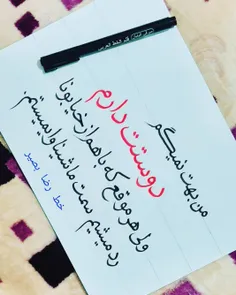 من بهت نمیگم
دوستت دارم
ولی هر موقع که باهم از خیابونا
رد میشیم سمت ماشینا وایمیستم.
خط رضا بصیر